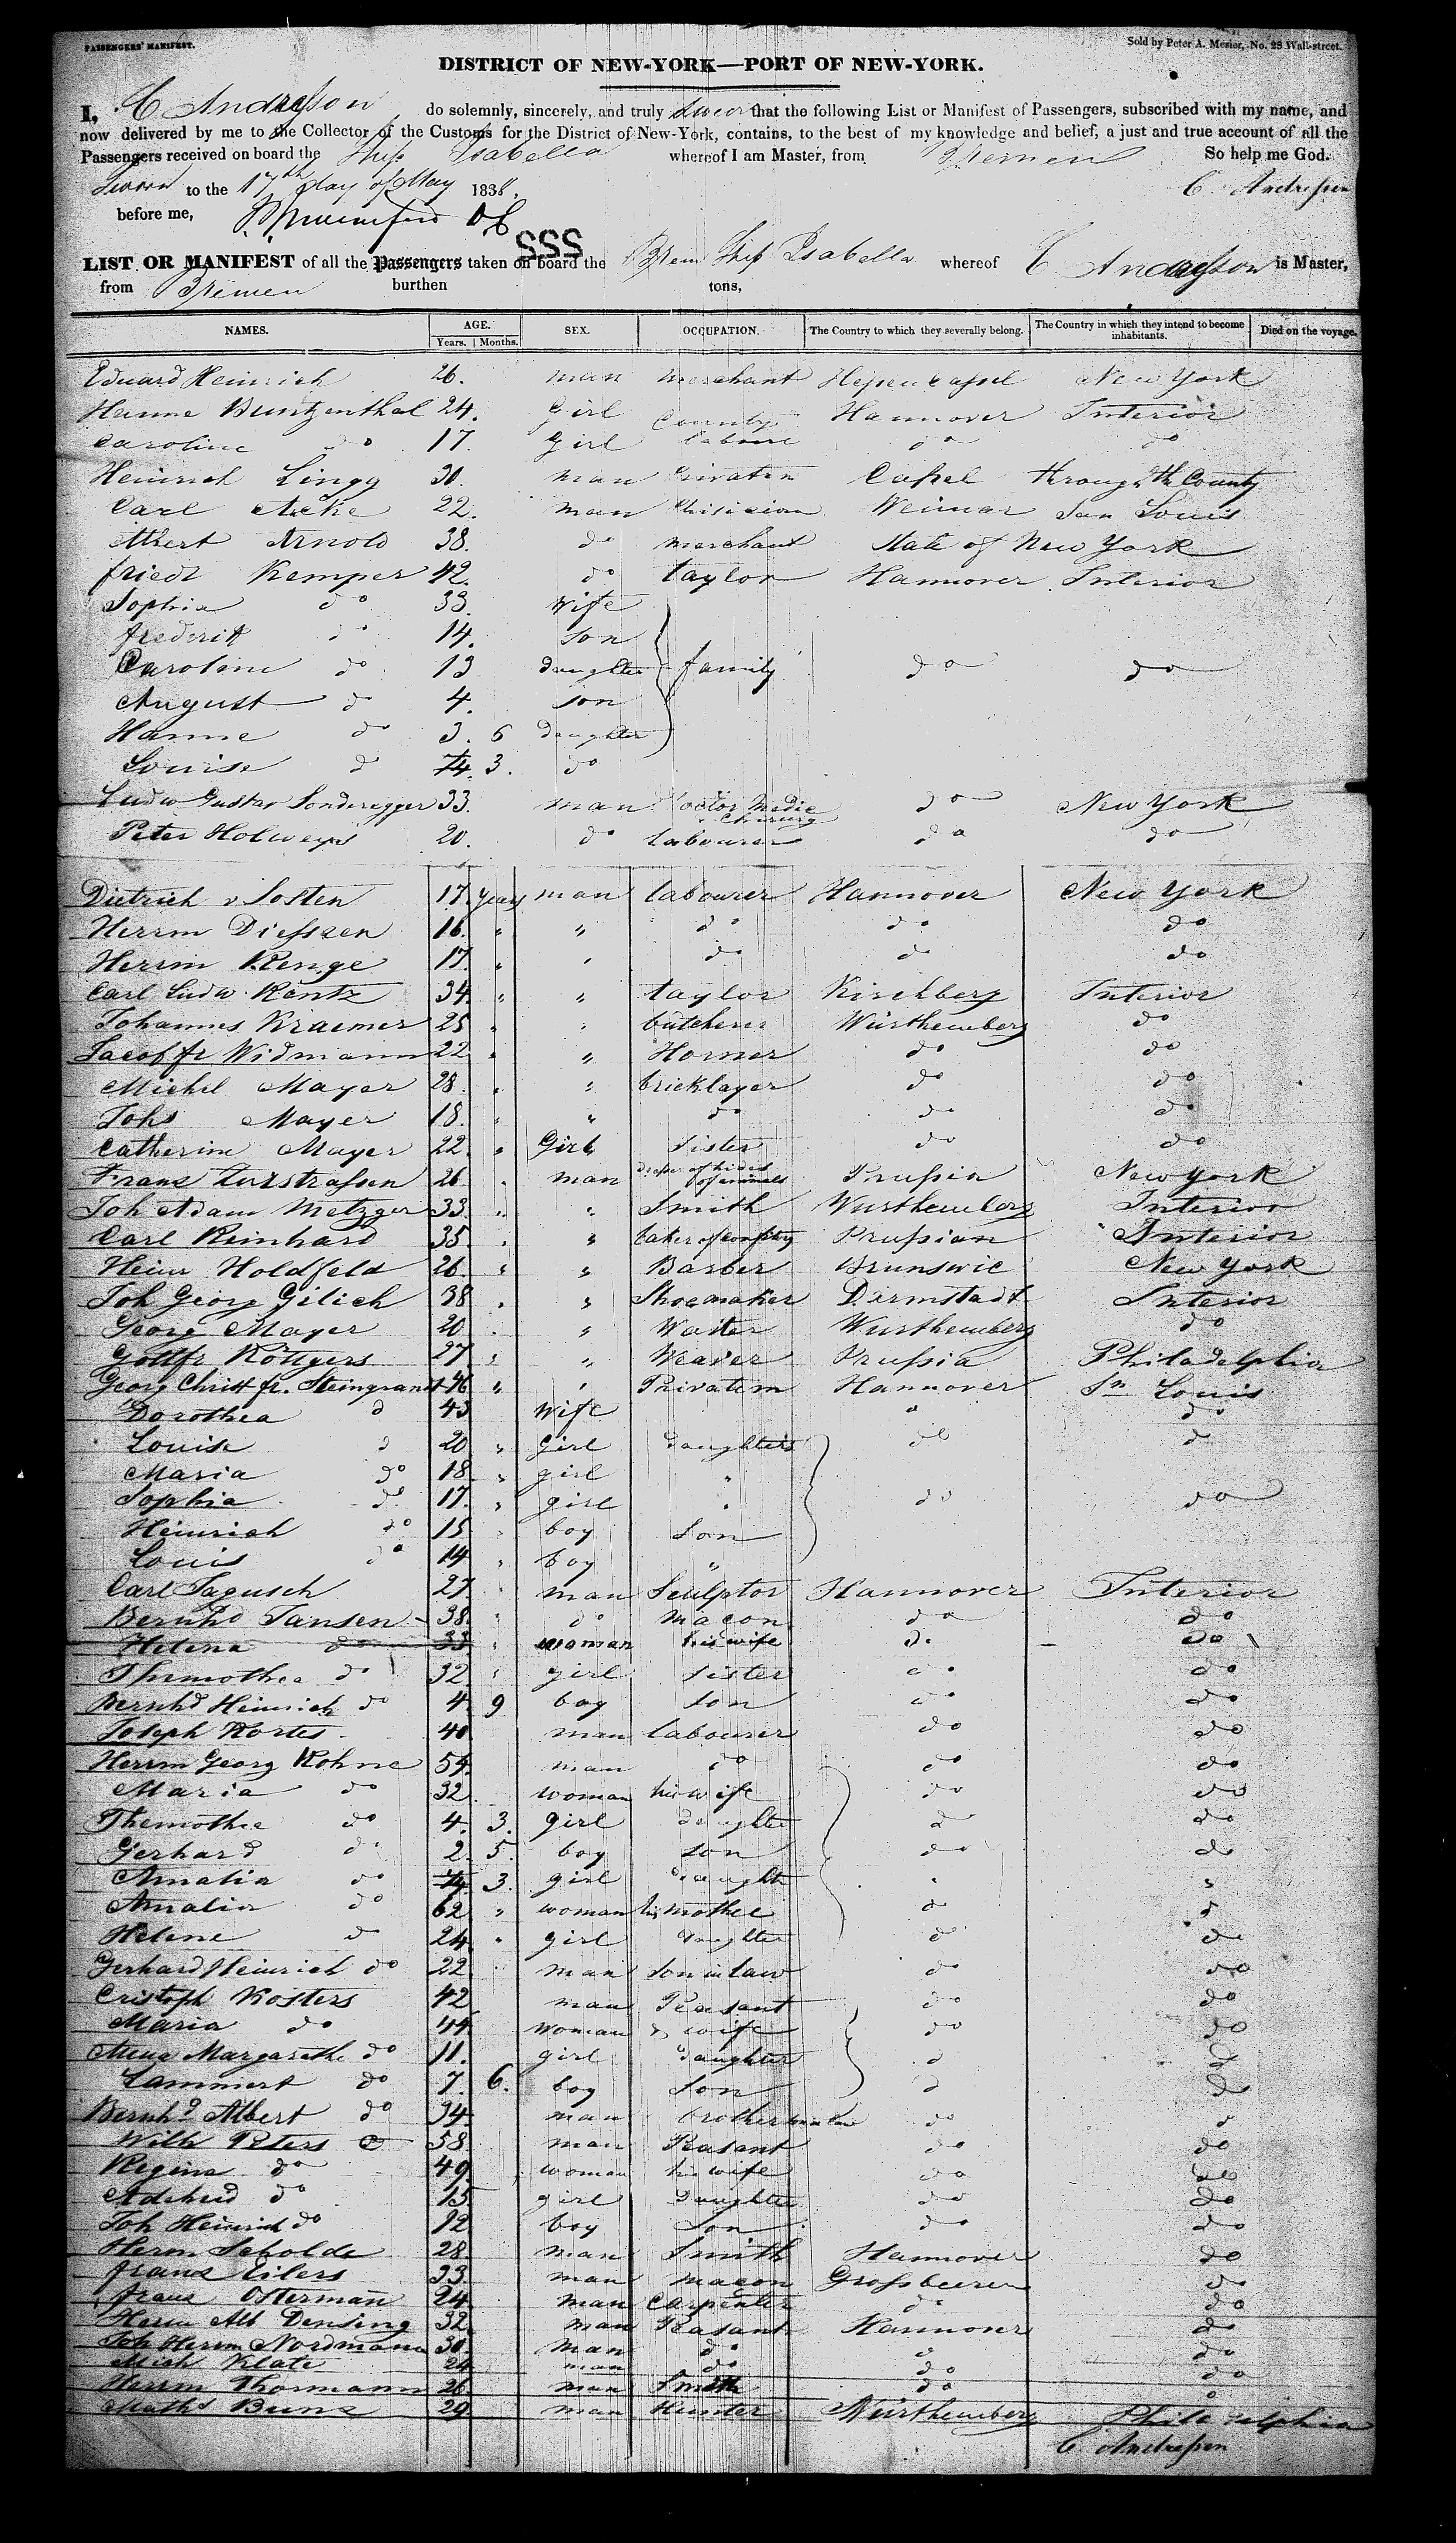 PASSENGERS' MANIFEST.
Sold by Peter A. Mesier, No. 28 Wall-street.
DISTRICT OF NEW-YORK—PORT OF NEW-YORK.
I, C Andresson do solemnly, sincerely, and truly swear that the following List or Manifest of Passengers, subscribed with my name, and
now delivered by me to the Collector of the Customs for the District of New-York, contains, to the best of my knowledge and belief, a just and true account of all the
Passengers received on board the Ship Isabella whereof I am Master, from Bremen So help me God.
Sworn to the 17th day of May 1838. C. Andressen
before me,
LIST OR MANIFEST of all the Passengers taken on board the Brem Ship Isabella whereof C Andresson is Master,
from Bremen burthen tons,
NAMES. AGE. SEX. OCCUPATION. The Country to which they severally belong. The Country in which they intend to become inhabitants. Died on the voyage.
Years. Months.
Eduard Heinrich 26. man merchant Hessencassel New York
Hanne Buntzenthal 24. Girl Hannover Interior
Caroline do 17. Girl do do
Heinrich Lingg 30. man Privatin Cassel through the County
Carl Acke 22. man Phisician Weimar San Louis
Albert Arnold 38. do merchant State of New York
friedr Kemper 42. do taylor Hannover Interior
Sophia do 33. Wife
frederik do 14. Son
Caroline do 13 daughter family do do
August do 4. son
Hanne do 3. 6 daughter
Louise do 3. do
Ludw Gustav Sonderegger 33. man Doctor Medic Chirurg do New York
Peter Holweges 20. do labourer do do
Dietrich v Sosten 17. years man labourer Hannover New York
Herrm Diesszen 16. " " do do do
Herrm Renge 17. " " do do do
Carl Ludw. Rentz 34. " " taylor Kirchberg Interior
Johannes Kraemer 25 " " butcherer Würthemberg do
Jacob fr Widmann 22 " " Horner do do
Michel Mayer 28. " " bricklayer do do
Johs Mayer 18. " " do do do
Catherine Mayer 22. " Girl Sister do do
Franz Zurstrassen 26 " man of hides of animals Prussia New York
Joh Adam Metzger 33. " " Smith Wurthemberg Interior
Carl Reinhard 35. " " baker of Prussian Interior
Heinr Holdfeld 26. " " Barber Brunswic New York
Joh Georg Gilich 38 " " Shoemaker Darmstadt Interior
Georg Mayer 20 " " Waiter Wurthemberg do
Gottfr Röttgers 27 " " Weaver Prussia Philadelphia
Georg Christ fr. Steingrandt 46 " " Privatim Hannover Sn Louis
Dorothea d 43 Wife " do
Louise d 20 " girl daughters do do
Maria do 18. " girl "
Sophia do 17. " girl " do do
Heinrich do 15 " boy Son
Louis do 14 " boy "
Carl Tagusch 27. " man Sculptor Hannover Interior
Bernhd Jansen 38. " do macon do do
Helena do 33 " woman his wife do do
Themothea do 32. " girl sister do do
Bernhd Heinrich do 4. 9 boy son do do
Joseph Kortes 40. man labourer do do
Herrm Georg Kohne 54. man do do do
Maria do 32. woman his wife do do
Themothee do 4. 3. girl daughter do do
Gerhard do 2. 5. boy son do do
Amalia do 3. girl daughte " "
Amalia do 62 " woman his mother do do
Helene do 24. " girl daughter do do
Gerhard Heinrich do 22 man son in law do do
Cristoph Kosters 42 man Peasant do do
Maria do 44. woman wife do do
Margarethe do 11. girl daughter d do
Lammert do 7. 6. boy Son d do
Bernhd Albert do 34. man brother in law do do
Wilh Peters 58. man Peasant do do
Regina do 49 woman his wife do do
Adeheid do 15 girl daughter do do
Joh Heinrich do 12 boy Son do do
Herm Scholde 28. man Smith Hannover do
franz Eilers 33. man macon do
franz Osterman 24 man Carpenter do do
Herm Alb Densing 32. man Peasant Hannover do
Joh Herrm Nordmann 30. man do do do
Mich Klate 24 man do do do
Herrm Thormann 26 man Smith do
Maths Buns 29 man Hunter Würthemberg Philadelphia
C. Andressen